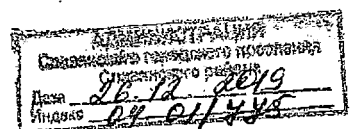 АДМИНИСТРАЦИЯ
Славянского городского поселения
Славянского района
Дата 26.12 2019
Индекс 04-01/775